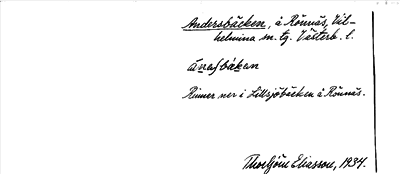 Andersbäcken, å Rönnäs, Vil-
helmina sn. tg. Västerb. l.
Rinner ner i Lillsjöbäcken å Rönnäs.
Thorbjörn Eliasson, 1934.